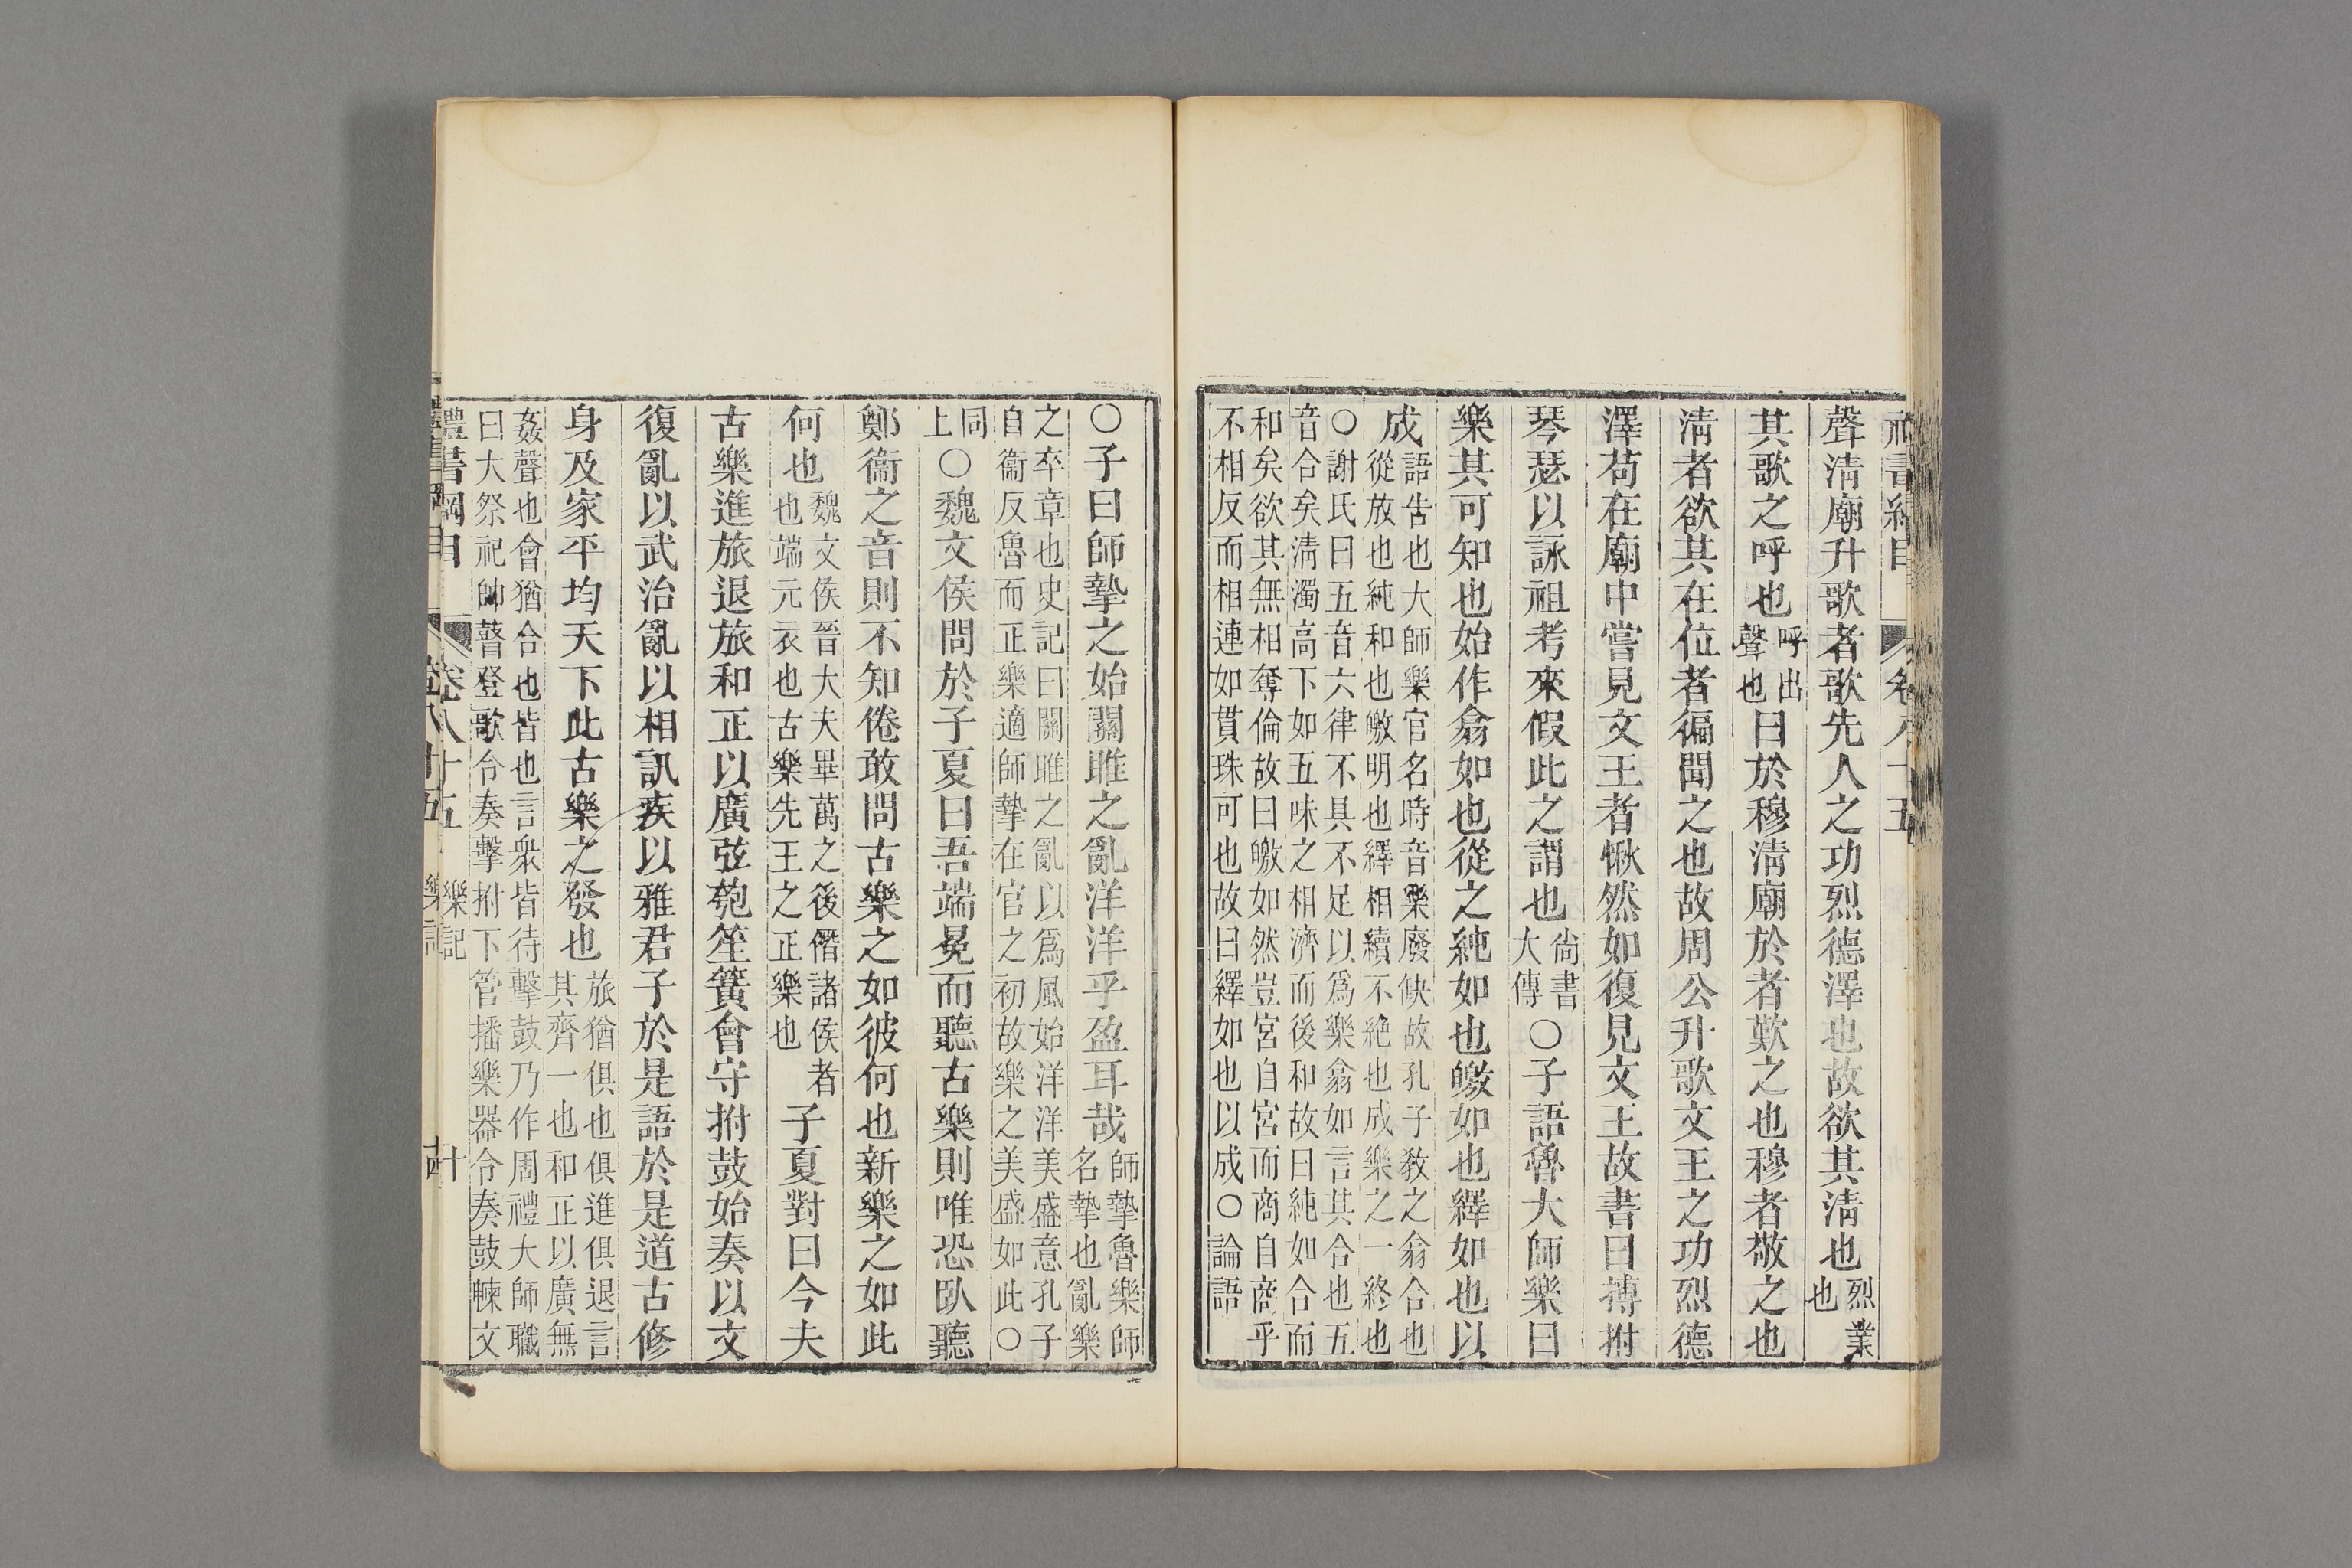 聲清廟升歌者歌先人之功烈德澤也故欲其清也烈業也
其歌之呼也呼出聲也曰於穆清廟於者歎之也穆者敬之也
清者欲其在位者徧聞之也故周公升歌文王之功烈德
澤苟在廟中嘗見文王者愀然如復見文王故書曰搏拊
琴瑟以詠祖考來假此之謂也尚書大傳○子語魯大師樂曰
樂其可知也始作翕如也從之純如也皦如也繹如也以
成語告也大師樂官名時音樂廢缺故孔子敎之翕合也
從放也純和也皦明也繹相續不絶也成樂之一終也
○謝氏曰五音六律不具不足以爲樂翕如言其合也五
音合矣清濁高下如五味之相濟而後和故曰純如合而
和矣欲其無相奪倫故曰皦如然豈宮自宮而商自商乎
不相反而相連如貫珠可也故曰繹如也以成○論語
○子曰師摯之始關雎之亂洋洋乎盈耳哉師摯魯樂師名摯也亂樂
之卒章也史記曰關雎之亂以爲風始洋洋美盛意孔子
自衞反魯而正樂適師摯在官之初故樂之美盛如此○
同上○魏文侯問於子夏曰吾端冕而聽古樂則唯恐臥聽
鄭衞之音則不知倦敢問古樂之如彼何也新樂之如此
何也魏文侯晉大夫畢萬之後僭諸侯者也端元衣也古樂先王之正樂也子夏對曰今夫
古樂進旅退旅和正以廣弦匏笙簧會守拊鼓始奏以文
復亂以武治亂以相訊疾以雅君子於是語於是道古修
身及家平均天下此古樂之發也旅猶俱也俱進俱退言其齊一也和正以廣無
姦聲也會猶合也皆也言衆皆待擊鼓乃作周禮大師職
曰大祭祀帥瞽登歌令奏擊拊下管播樂器令奏鼓朄文
禮書綱目 卷八十五 樂記 十